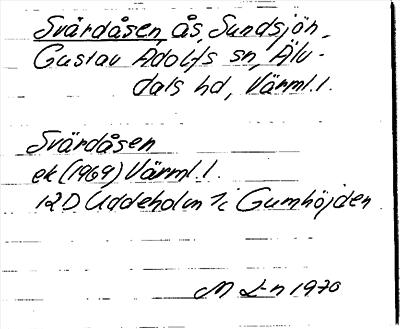 Svärdåsen, ås, Sundsjön,
Gustav Adolfs sn, Älv-
dals hd, Värml. l.
Svärdåsen
ek (1969) Värml. l.
12 D Uddeholm 7c Gumhöjden
M L-n 1970